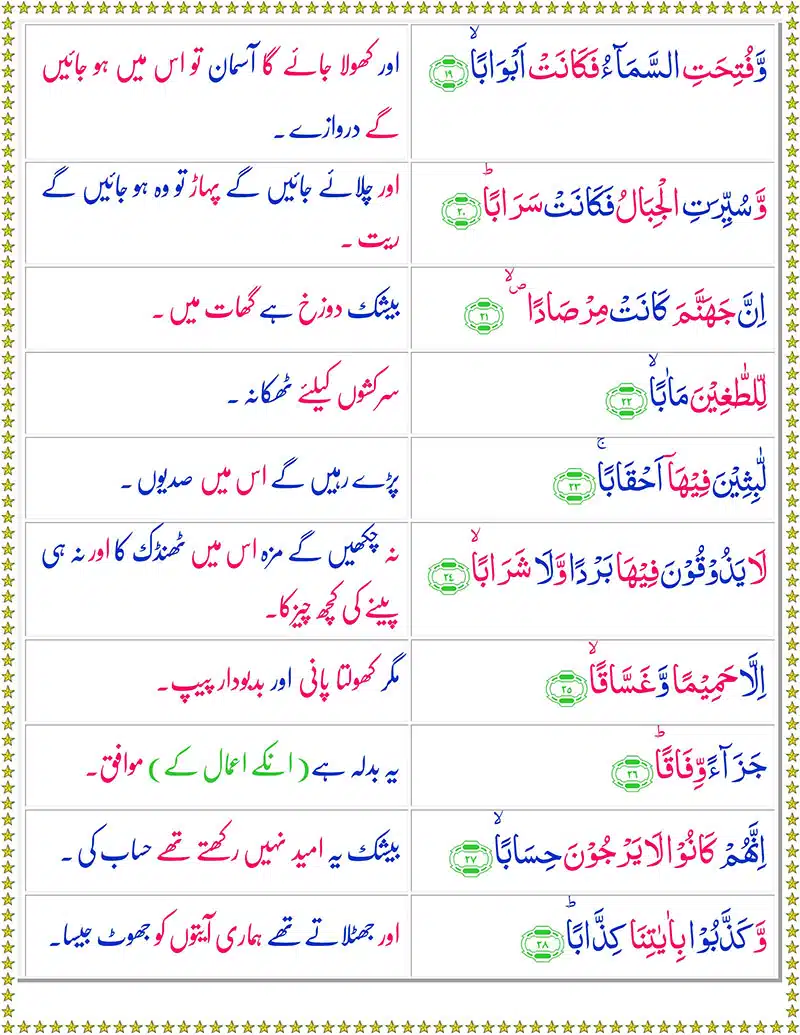 وَّفُتِحَتِ السَّمَآءُ فَكَانَتْ اَبْوَابًاۙ ۱۹
اور کھولا جائے گا آسمان تو اس میں ہو جائیں
گے دروازے ۔
وَّسُیِّرَتِ الْجِبَالُ فَكَانَتْ سَرَابًاؕ ۲۰
اور چلائے جائیں گے پہاڑ تو وہ ہو جائیں گے
ریت ۔
اِنَّ جَهَنَّمَ كَانَتْ مِرْصَادًاۙ ۪ۙ ۲۱
بیشک دوزخ ہے گھات میں ۔
لِّلطّٰغِیْنَ مَاٰبًاۙ ۲۲
سرکشوں کیلئے ٹھکانہ ۔
لّٰبِثِیْنَ فِیْهَاۤ اَحْقَابًاۚ ۲۳
پڑے رہیں گے اس میں صدیوں ۔
لَا یَذُوْقُوْنَ فِیْهَا بَرْدًا وَّلَا شَرَابًاۙ ۲۴
نہ چکھیں گے مزہ اس میں ٹھنڈک کا اور نہ ہی
پینے کی کچھ چیز کا۔
اِلَّا حَمِیْمًا وَّغَسَّاقًاۙ ۲۵
مگر کھولتا پانی اور بدبودار پیپ۔
جَزَآءً وِّفَاقًاؕ ۲۶
یہ بدلہ ہے (انکے اعمال کے) موافق۔
اِنَّهُمْ كَانُوْا لَا یَرْجُوْنَ حِسَابًاۙ ۲۷
بیشک یہ امید نہیں رکھتے تھے حساب کی ۔
وَّكَذَّبُوْا بِاٰیٰتِنَا كِذَّابًاؕ ۲۸
اور جھٹلاتے تھے ہماری آیتوں کو جھوٹ جیسا۔